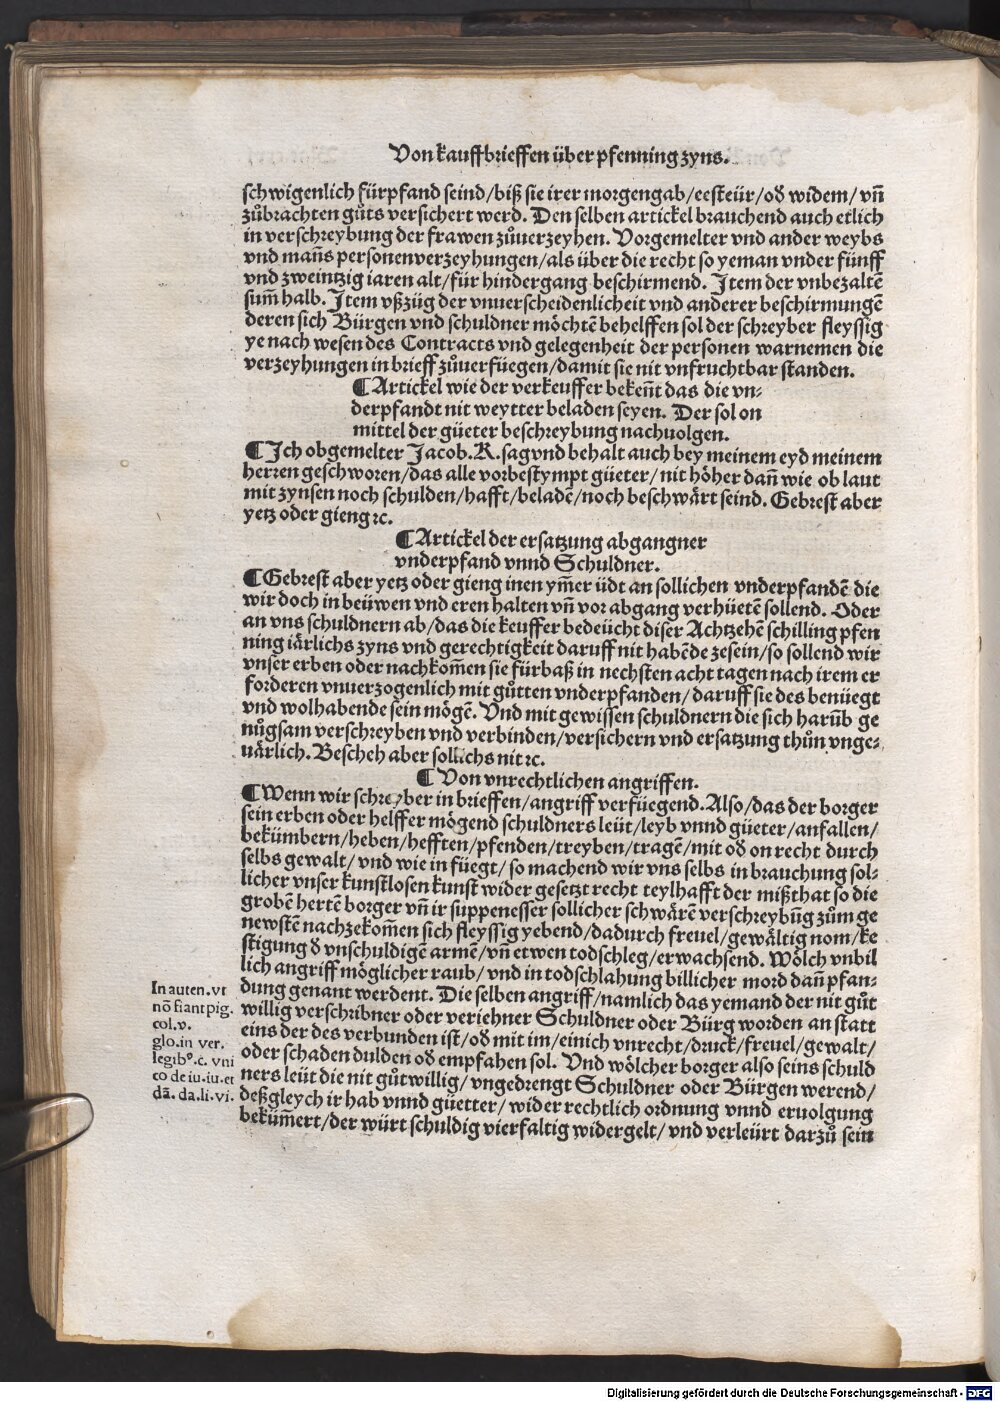 Von kauffbrieffen über pfenning zyns.
schwigenlich fürpfand seind/biß sie irer morgengab/eesteür/oď widem/vñ
zůbrachten gůts versichert werd. Den selben artickel brauchend auch etlich
in verschreybung der frawen zůuerzeyhen. Vorgemelter vnd ander weybs
vnd mañs personen verzeyhungen/als über die recht so yeman vnder fünff
vnd zweintzig iaren alt/für hindergang beschirmend. Item der vnbezaltẽ
sum̃ halb. Item vßzüg der vnuerscheidenlicheit vnd anderer beschirmungẽ
deren sich Bürgen vnd schuldner möchtẽ behelffen sol der schreyber fleyssig
ye nach wesen des Contracts vnd gelegenheit der personen warnemen die
verzeyhungen in brieff zůuerfüegen/damit sie nit vnfruchtbar standen.
¶Artickel wie der verkeuffer bekeñt das die vn-
derpfandt nit weytter beladen seyen. Der sol on
mittel der güeter beschreybung nachuolgen.
¶Ich obgemelter Jacob.R.sag vnd behalt auch bey meinem eyd meinem
herren geschworen/das alle vorbestympt güeter/nit höher dañ wie ob laut
mit zynsen noch schulden/hafft/beladẽ/noch beschwärt seind. Gebrest aber
yetz oder gieng ꝛc.
¶Artickel der ersatzung abgangner
vnderpfand vnnd Schuldner.
¶Gebrest aber yetz oder gieng inen ym̃er üdt an sollichen vnderpfandẽ die
wir doch in beüwen vnd eren halten vñ vor abgang verhüetẽ sollend. Oder
an vns schuldnern ab/das die keuffer bedeücht diser Achtzehẽ schilling pfen
ning iärlichs zyns vnd gerechtigkeit daruff nit habẽde zesein/so sollend wir
vnser erben oder nachkom̃en sie fürbaß in nechsten acht tagen nach irem er
forderen vnuerzogenlich mit gůtten vnderpfanden/daruff sie des benüegt
vnd wolhabende sein mögẽ. Vnd mit gewissen schuldnern die sich harũb ge
nůgsam verschreyben vnd verbinden/versichern vnd ersatzung thůn vnge-
uärlich. Bescheh aber sollichs nit ꝛc.
¶Von vnrechtlichen angriffen.
¶Wenn wir schreyber in brieffen/angriff verfüegend. Also/das der borger
sein erben oder helffer mögend schuldners leüt/leyb vnnd güeter/anfallen/
bekümbern/heben/hefften/pfenden/treyben/tragẽ/mit oď on recht durch
selbs gewalt/vnd wie in füegt/so machend wir vns selbs in brauchung sol-
licher vnser kunstlosen kunst wider gesetzt recht teylhafft der mißthat so die
grobẽ hertẽ borger vñ ir suppenesser sollicher schwärẽ verschreybũg zům ge
newstẽ nachzekom̃en sich fleyssig yebend/dadurch freuel/gewältig nom/ke
stigung ď vnschuldigẽ armẽ/vñ etwen todschleg/erwachsend. Wölch vnbil
lich angriff möglicher raub/vnd in todschlahung billicher mord dañ pfan-
dung genant werdent. Die selben angriff/namlich das yemand der nit gůt
willig verschribner oder veriehner Schuldner oder Bürg worden an statt
eins der des verbunden ist/oď mit im/einich vnrecht/druck/freuel/gewalt/
oder schaden dulden oď empfahen sol. Vnd wölcher borger also seins schuld
ners leüt die nit gůtwillig/vngedrengt Schuldner oder Bürgen werend/
deßgleych ir hab vnnd güetter/wider rechtlich ordnung vnnd eruolgung
beküm̃ert/der würt schuldig vierfaltig widergelt/vnd verleürt darzů sein
In auten.vt
nõ fiant pig.
col.v.
glo.in ver.
legibꝰ.c. vni
co de iu.iu.et
dã. da.li.vi.
Digitalisierung gefördert durch die Deutsche Forschungsgemeinschaft - DFG